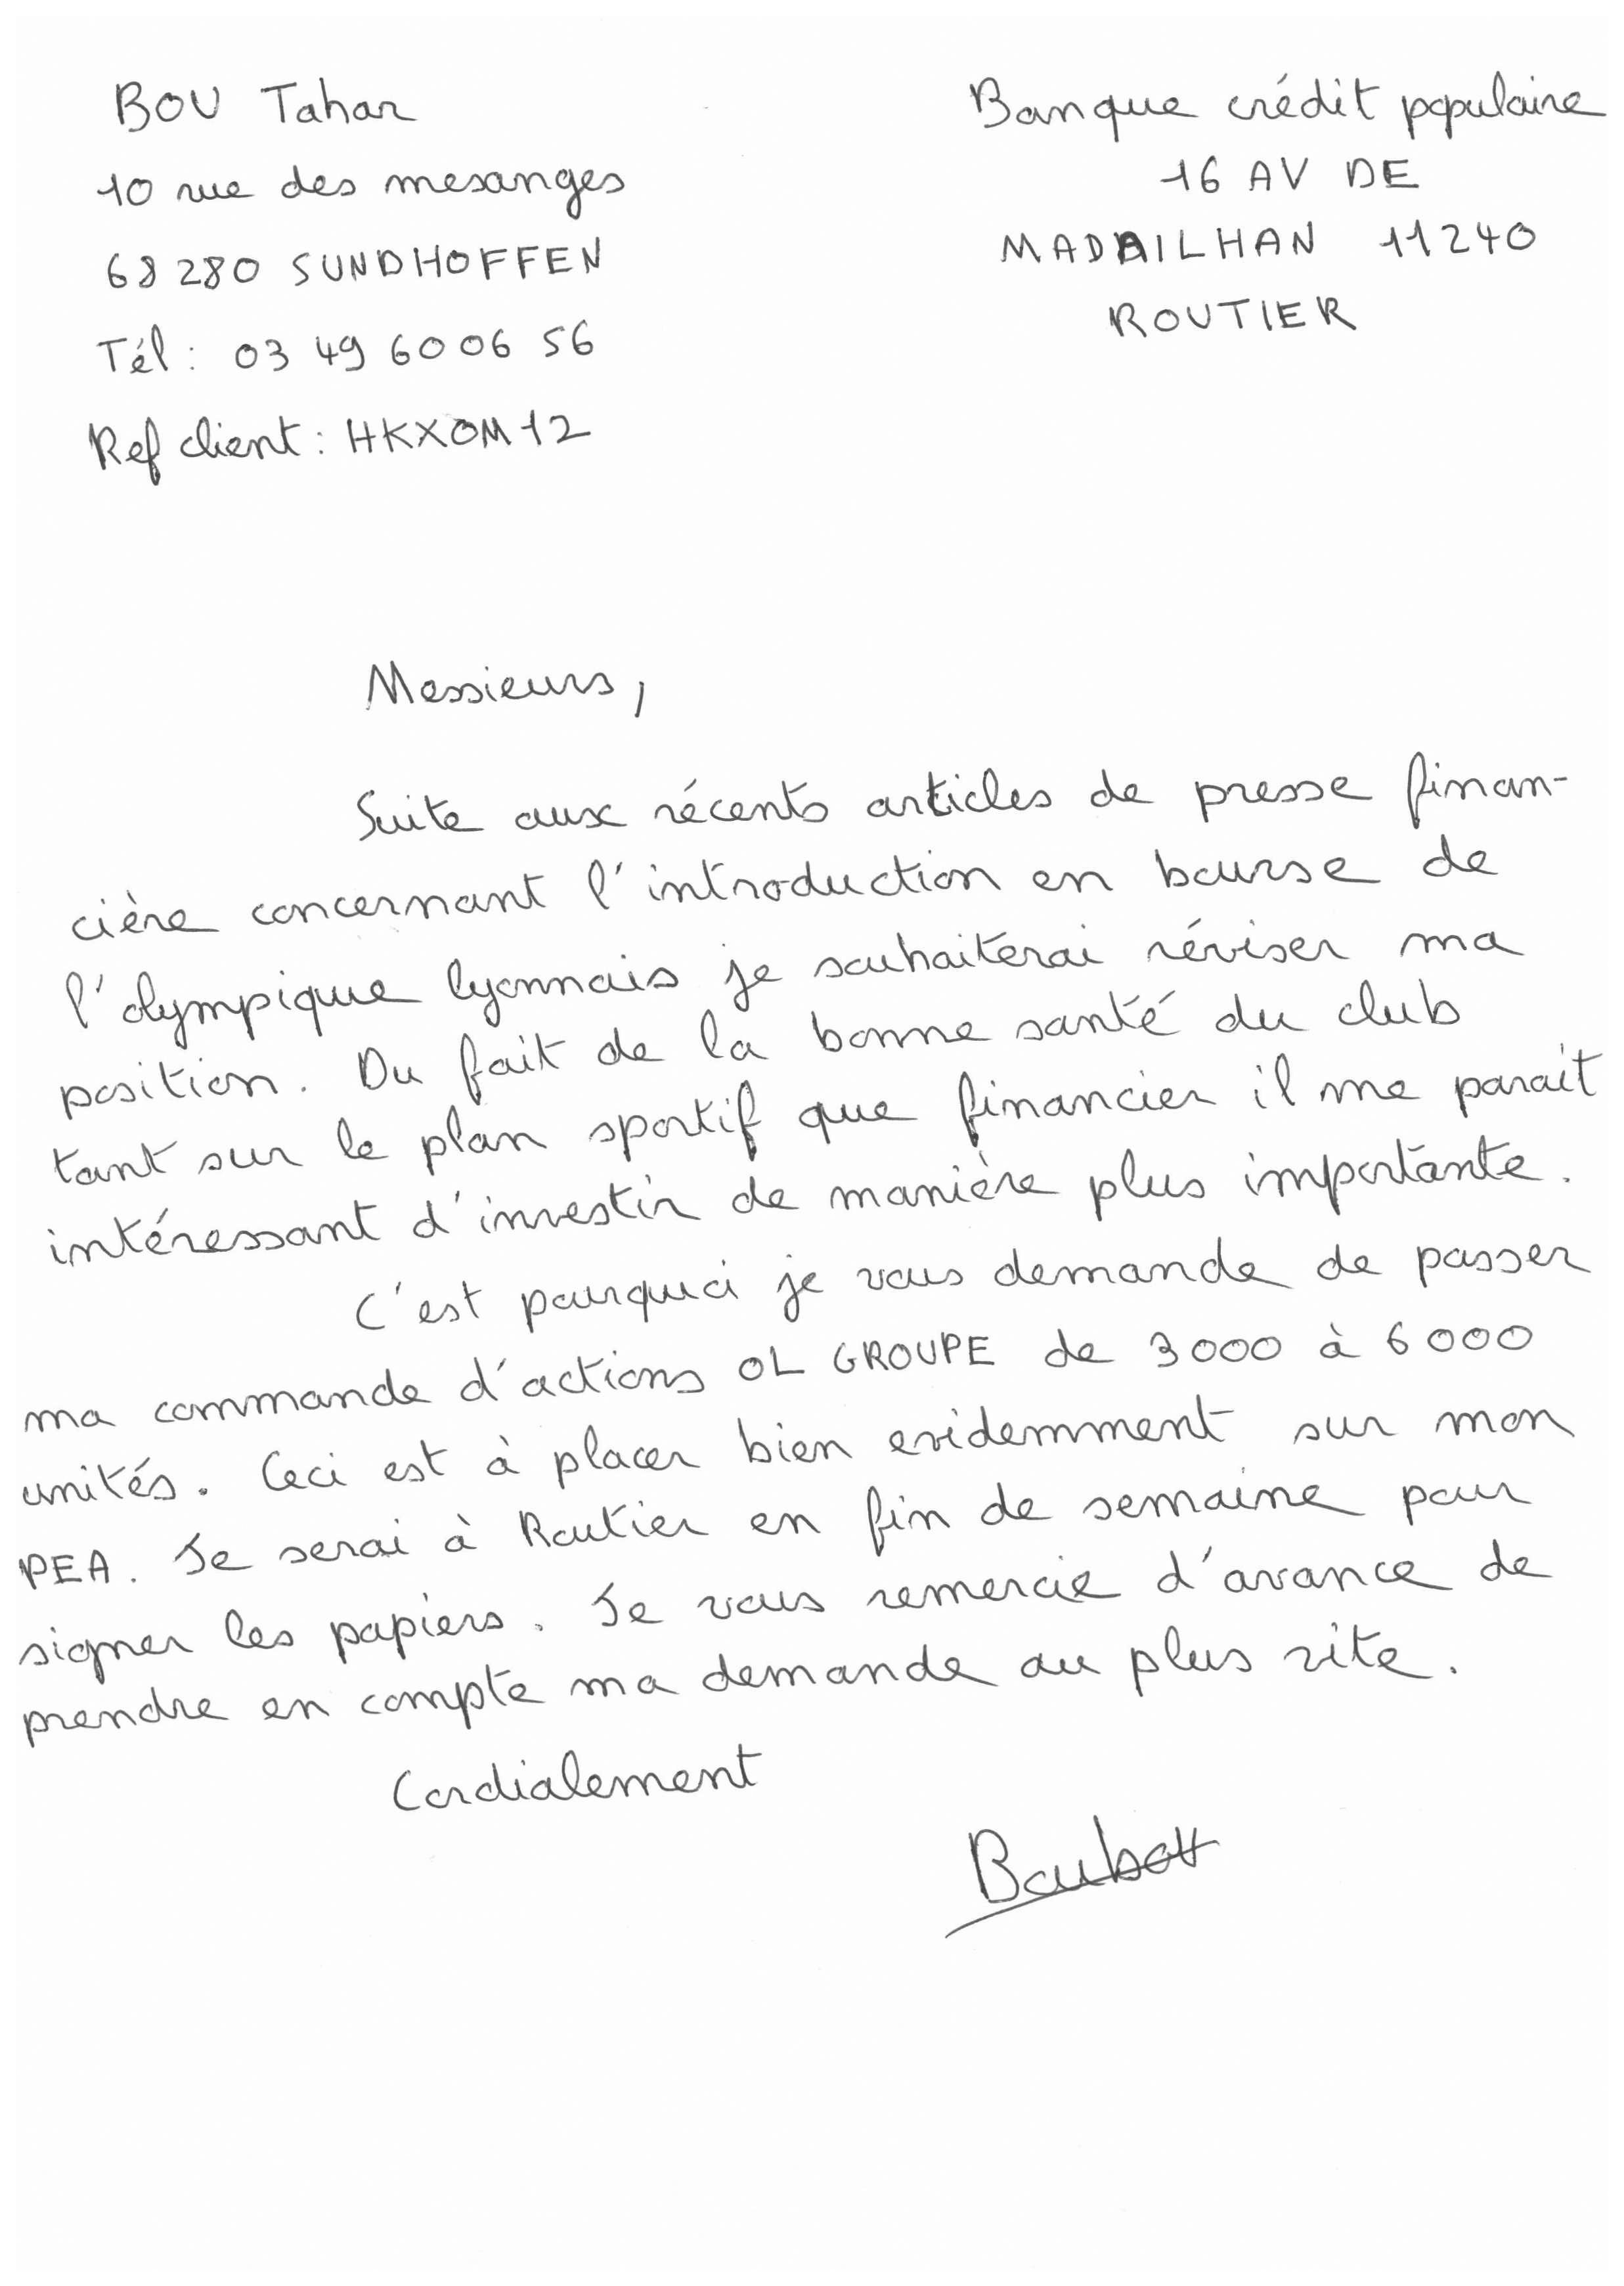 BOU Tahar
10 rue des mesanges
68280 SUNDHOFFEN
Tél : 03 49 60 06 56
Ref client : HKXOM12
Banque crédit populaire
16 AV DE
MADAILHAN 11240
ROUTIER
Messieurs,
Suite aux récents articles de presse finan-
cière concernant l'introduction en bourse de
l'olympique lyonnais je souhaiterai réviser ma
position. Du fait de la bonne santé du club
tant sur le plan sportif que financier il me parait
intéressant d'investir de manière plus importante.
C'est pourquoi je vous demande de passer
ma commande d'actions OL GROUPE de 3000 à 6000
unités. Ceci est à placer bien evidemment sur mon
PEA. Je serai à Routier en fin de semaine pour
signer les papiers. Je vous remercie d'avance de
prendre en compte ma demande au plus vite.
Cordialement